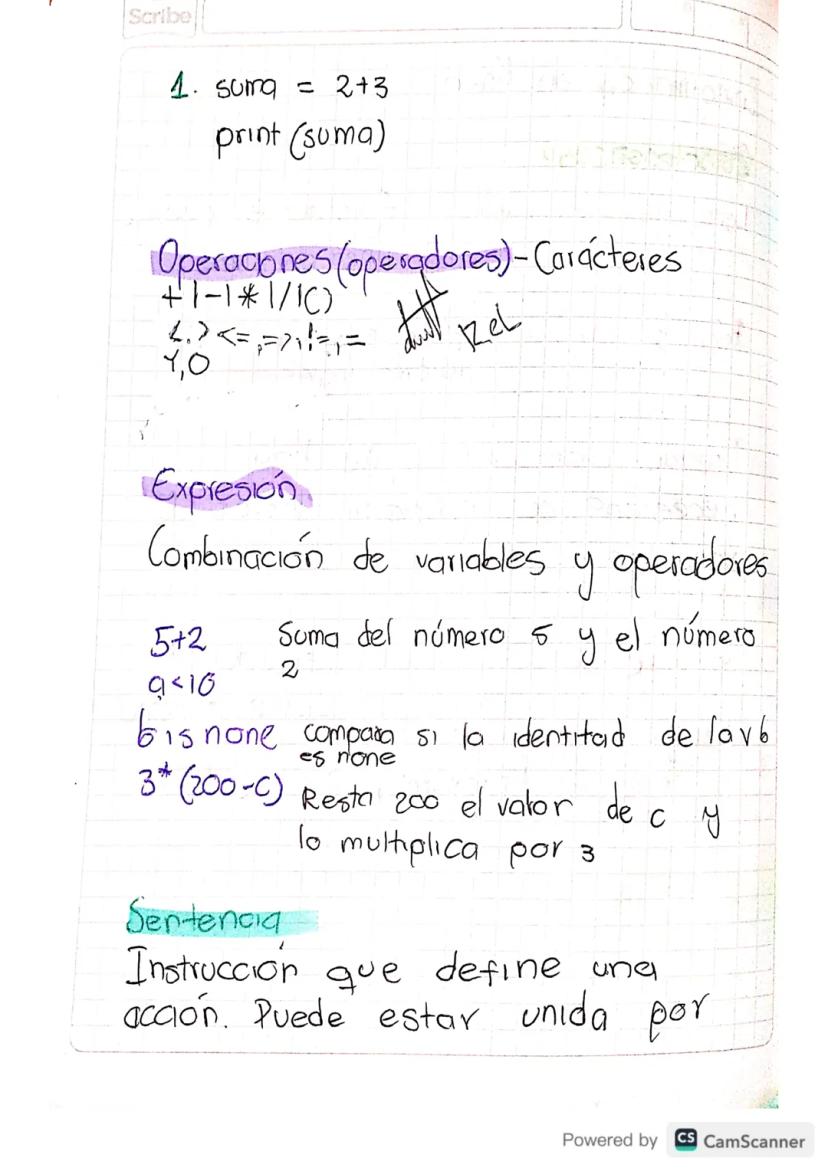 Scribe
1. suma = 2+3
print (suma)
Operaciones (operadores) - Carácteres
+ | - | * | / | ()
<,> <= ,=>,!=,=
Y,O
Expresión
Combinación de variables y operadores
5+2 Suma del número 5 y el número
2
a<10
b is none compara si la identitad de la v b
es none
3* (200-c) Resta 200 el valor de c y
lo multiplica por 3
Sentencia
Instrucción que define una
acción. Puede estar unida por
Powered by CS CamScanner